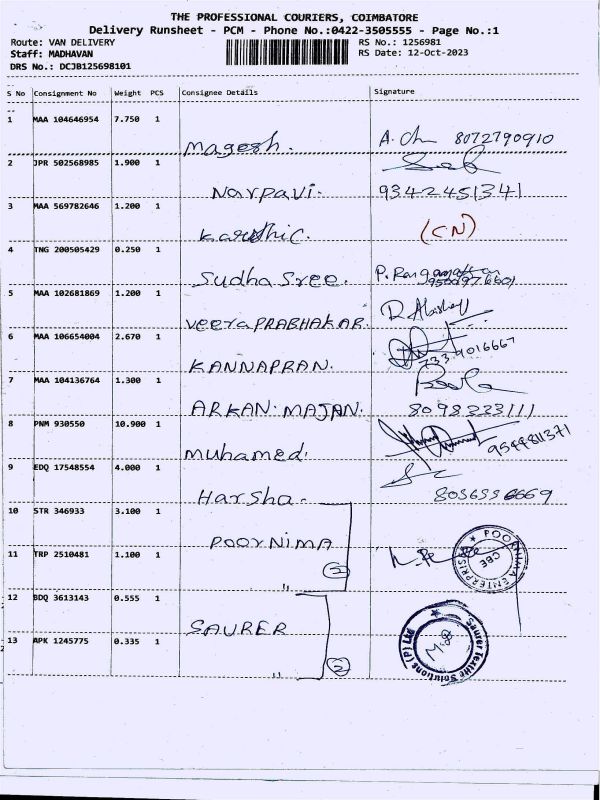 THE PROFESSIONAL COURIERS, COIMBATORE
Delivery Runsheet - PCM - Phone No.:0422-3505555 - Page No.:1
Route: VAN DELIVERY RS No.: 1256981
Staff: MADHAVAN RS Date: 12-Oct-2023
DRS No.: DCJB125698101
S No Consignment No Weight PCS Consignee Details Signature
1 MAA 104646954 7.750 1
Magesh. A. Ch 8072790910
2 JPR 502568985 1.900 1
Norpavi. 9342451341
3 MAA 569782646 1.200 1
Karthic. (CN)
4 TNG 200505429 0.250 1
Sudha Sree. P.
5 MAA 102681869 1.200 1
Veera PRABHAKAR.
6 MAA 106654004 2.670 1
KANNAPRAN. 7339016667
7 MAA 104136764 1.300 1
ARKAN. MAJAN. 8098223111
8 PNM 930550 10.900 1
Muhamed. 9544811371
9 EDQ 17548554 4.000 1
Harsha.
10 STR 346933 3.100 1
POORNIMA
11 TRP 2510481 1.100 1
" 2
POORNIMA ENTERPRISES
CBE
12 BDQ 3613143 0.555 1
SAURER
13 APK 1245775 0.335 1
" 2
Saurer Textile Solutions (P) Ltd